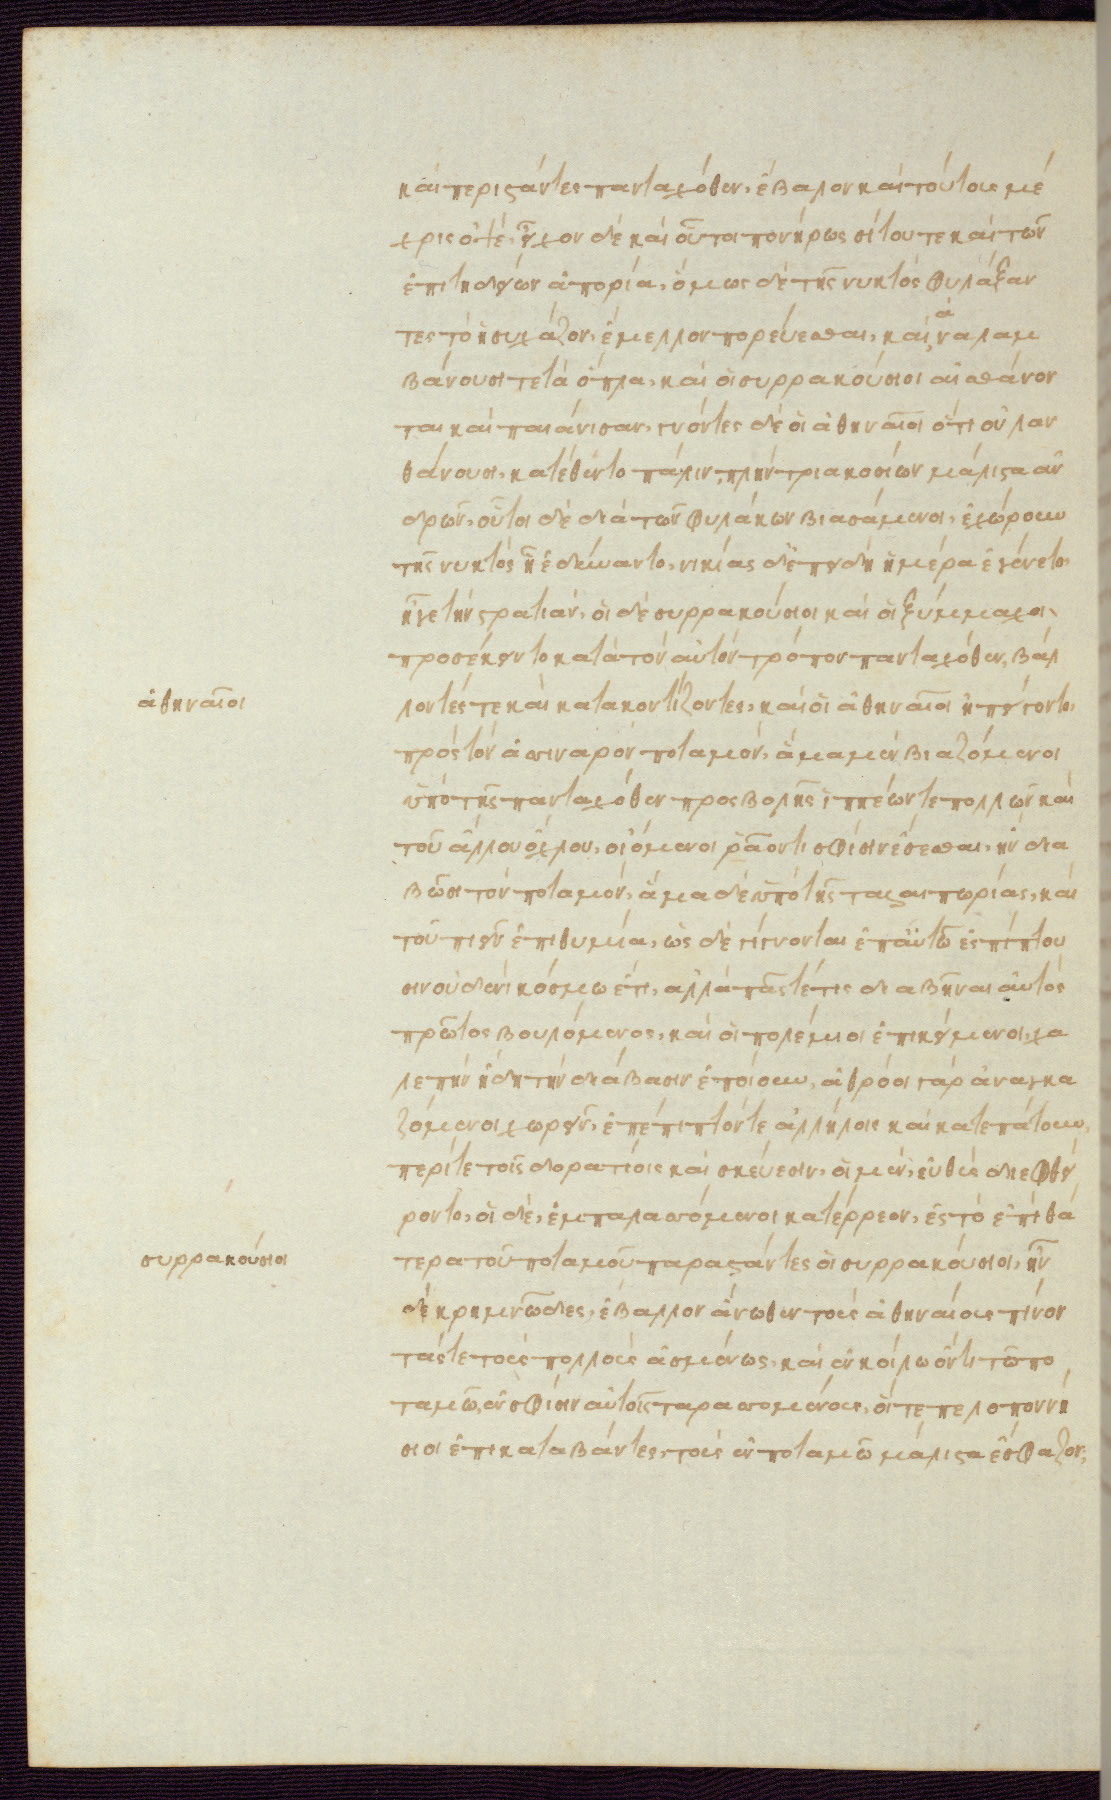 καὶ περιστάντες πανταχόθεν, ἔβαλον καὶ τούτους μέ
χρις ὀψέ, εἶχον δὲ καὶ οὗτοι πονήρως σίτου τε καὶ τῶν
ἐπιτηδείων ἀπορία, ὅμως δὲ τῆς νυκτὸς φυλάξαν
τες τὸ ἡσυχάζον, ἔμελλον πορεύεσθαι, καὶ ἀναλαμ
βάνουσί τε τὰ ὅπλα, καὶ οἱ συρρακούσιοι αἰσθάνον
ται καὶ παιάνισαν, γνόντες δὲ οἱ ἀθηναῖοι ὅτι οὐ λαν
θάνουσι, κατέθεντο πάλιν, πλὴν τριακοσίων μάλιστα ἀν
δρῶν, οὗτοι δὲ διὰ τῶν φυλάκων βιασάμενοι, ἐχώρουν
τῆς νυκτὸς ἧ ἐδύναντο, νικίας δ' ἐπειδὴ ἡμέρα ἐγένετο,
ἦγε τὴν στρατιάν, οἱ δὲ συρρακούσιοι καὶ οἱ ξύμμαχοι,
προσέκειντο κατὰ τὸν αὐτὸν τρόπον πανταχόθεν, βάλ
ἀθηναῖοι
λοντές τε καὶ κατακοντίζοντες, καὶ οἱ ἀθηναῖοι ἠπείγοντο,
πρὸς τὸν ἀσιναρὸν ποταμόν, ἅμα μὲν βιαζόμενοι
ὑπὸ τῆς πανταχόθεν προσβολῆς ἱππέων τε πολλῶν καὶ
τοῦ ἄλλου ὄχλου, οἰόμενοι ῥᾷόν τι σφίσιν ἔσεσθαι, ἢν δια
βῶσι τὸν ποταμόν, ἅμα δὲ ὑπὸ τῆς ταλαιπωρίας, καὶ
τοῦ πιεῖν ἐπιθυμία, ὡς δὲ γίγνονται ἐπ' αὐτῶ ἐσπίπτου
σιν οὐδενὶ κόσμω ἔτι, ἀλλὰ πᾶς τέ τις διαβῆναι αὐτὸς
πρῶτος βουλόμενος, καὶ οἱ πολέμιοι ἐπικείμενοι, χα
λεπὴν ἤδη τὴν διάβασιν ἐποίουν, ἀθρόοι γὰρ ἀναγκα
ζόμενοι χωρεῖν, ἐπέπιπτόν τε ἀλλήλοις καὶ κατεπάτουν,
περί τε τοῖς δορατίοις καὶ σκεύεσιν, οἱ μὲν, εὐθὺς διεφθεί
ροντο, οἱ δὲ, ἐμπαλασσόμενοι κατέρρεον, ἐς τὸ ἐπὶ θά
συρρακούσιοι
τερα τοῦ ποταμοῦ παραστάντες οἱ συρρακούσιοι, ἦν
δὲ κρημνῶδες, ἔβαλλον ἄνωθεν τοὺς ἀθηναίους πίνον
τάς τε τοὺς πολλοὺς ἀσμένως, καὶ ἐν κοίλω ὄντι τῶ πο
ταμῶ, ἐν σφίσιν αὐτοῖς ταρασσομένους, οἵ τε πελοποννή
σιοι ἐπικαταβάντες, τοὺς ἐν ποταμῶ μάλιστα ἔσφαζον,